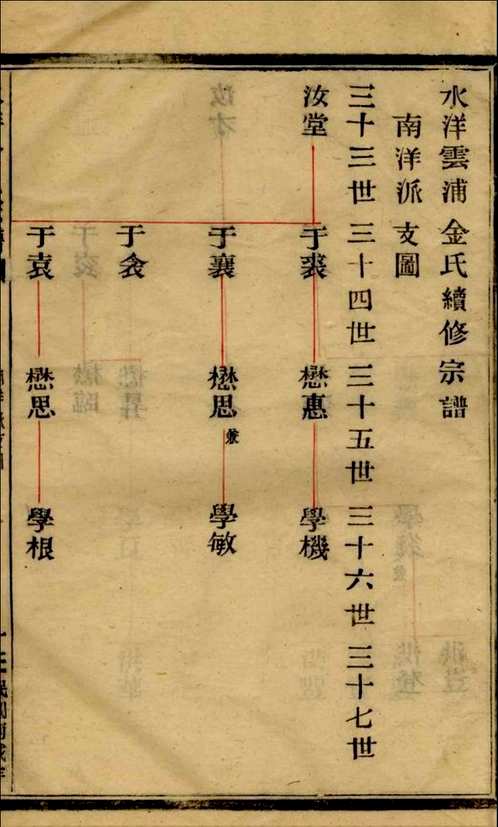 水洋雲浦金氏續修宗譜
南洋派支圖
三十三世 三十四世 三十五世 三十六世 三十七世
汝堂 于裘 懋惠 學機
于襄 懋思 兼 學敏
于衾
于袁 懋思 學根